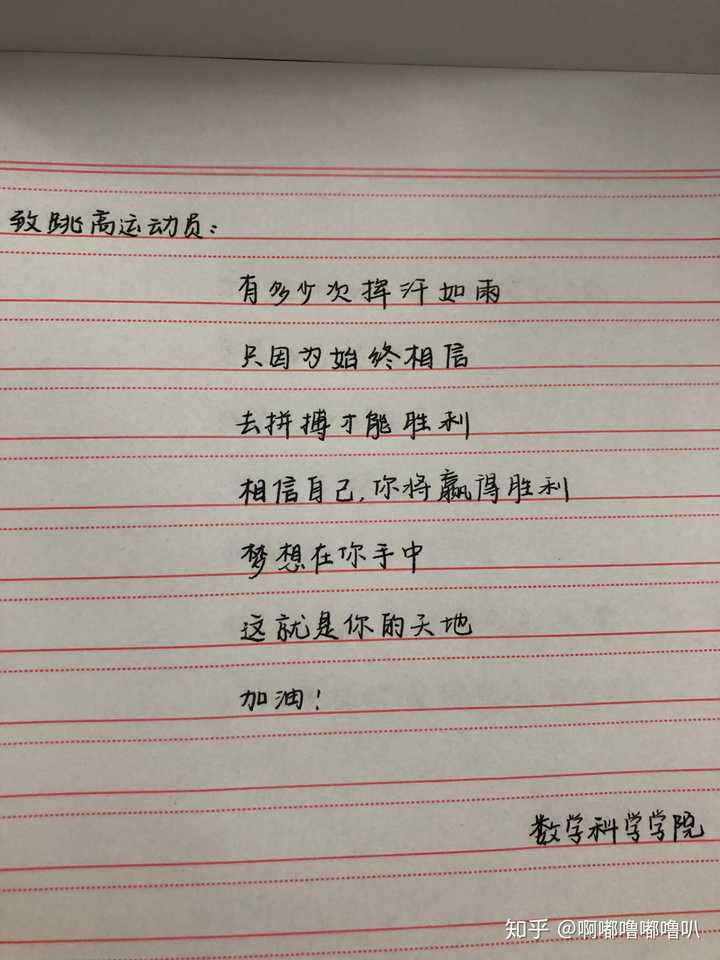 致跳高运动员：
有多少次挥汗如雨
只因为始终相信
去拼搏才能胜利
相信自己，你将赢得胜利
梦想在你手中
这就是你的天地
加油！
数学科学学院
知乎 @啊嘟噜嘟噜叭